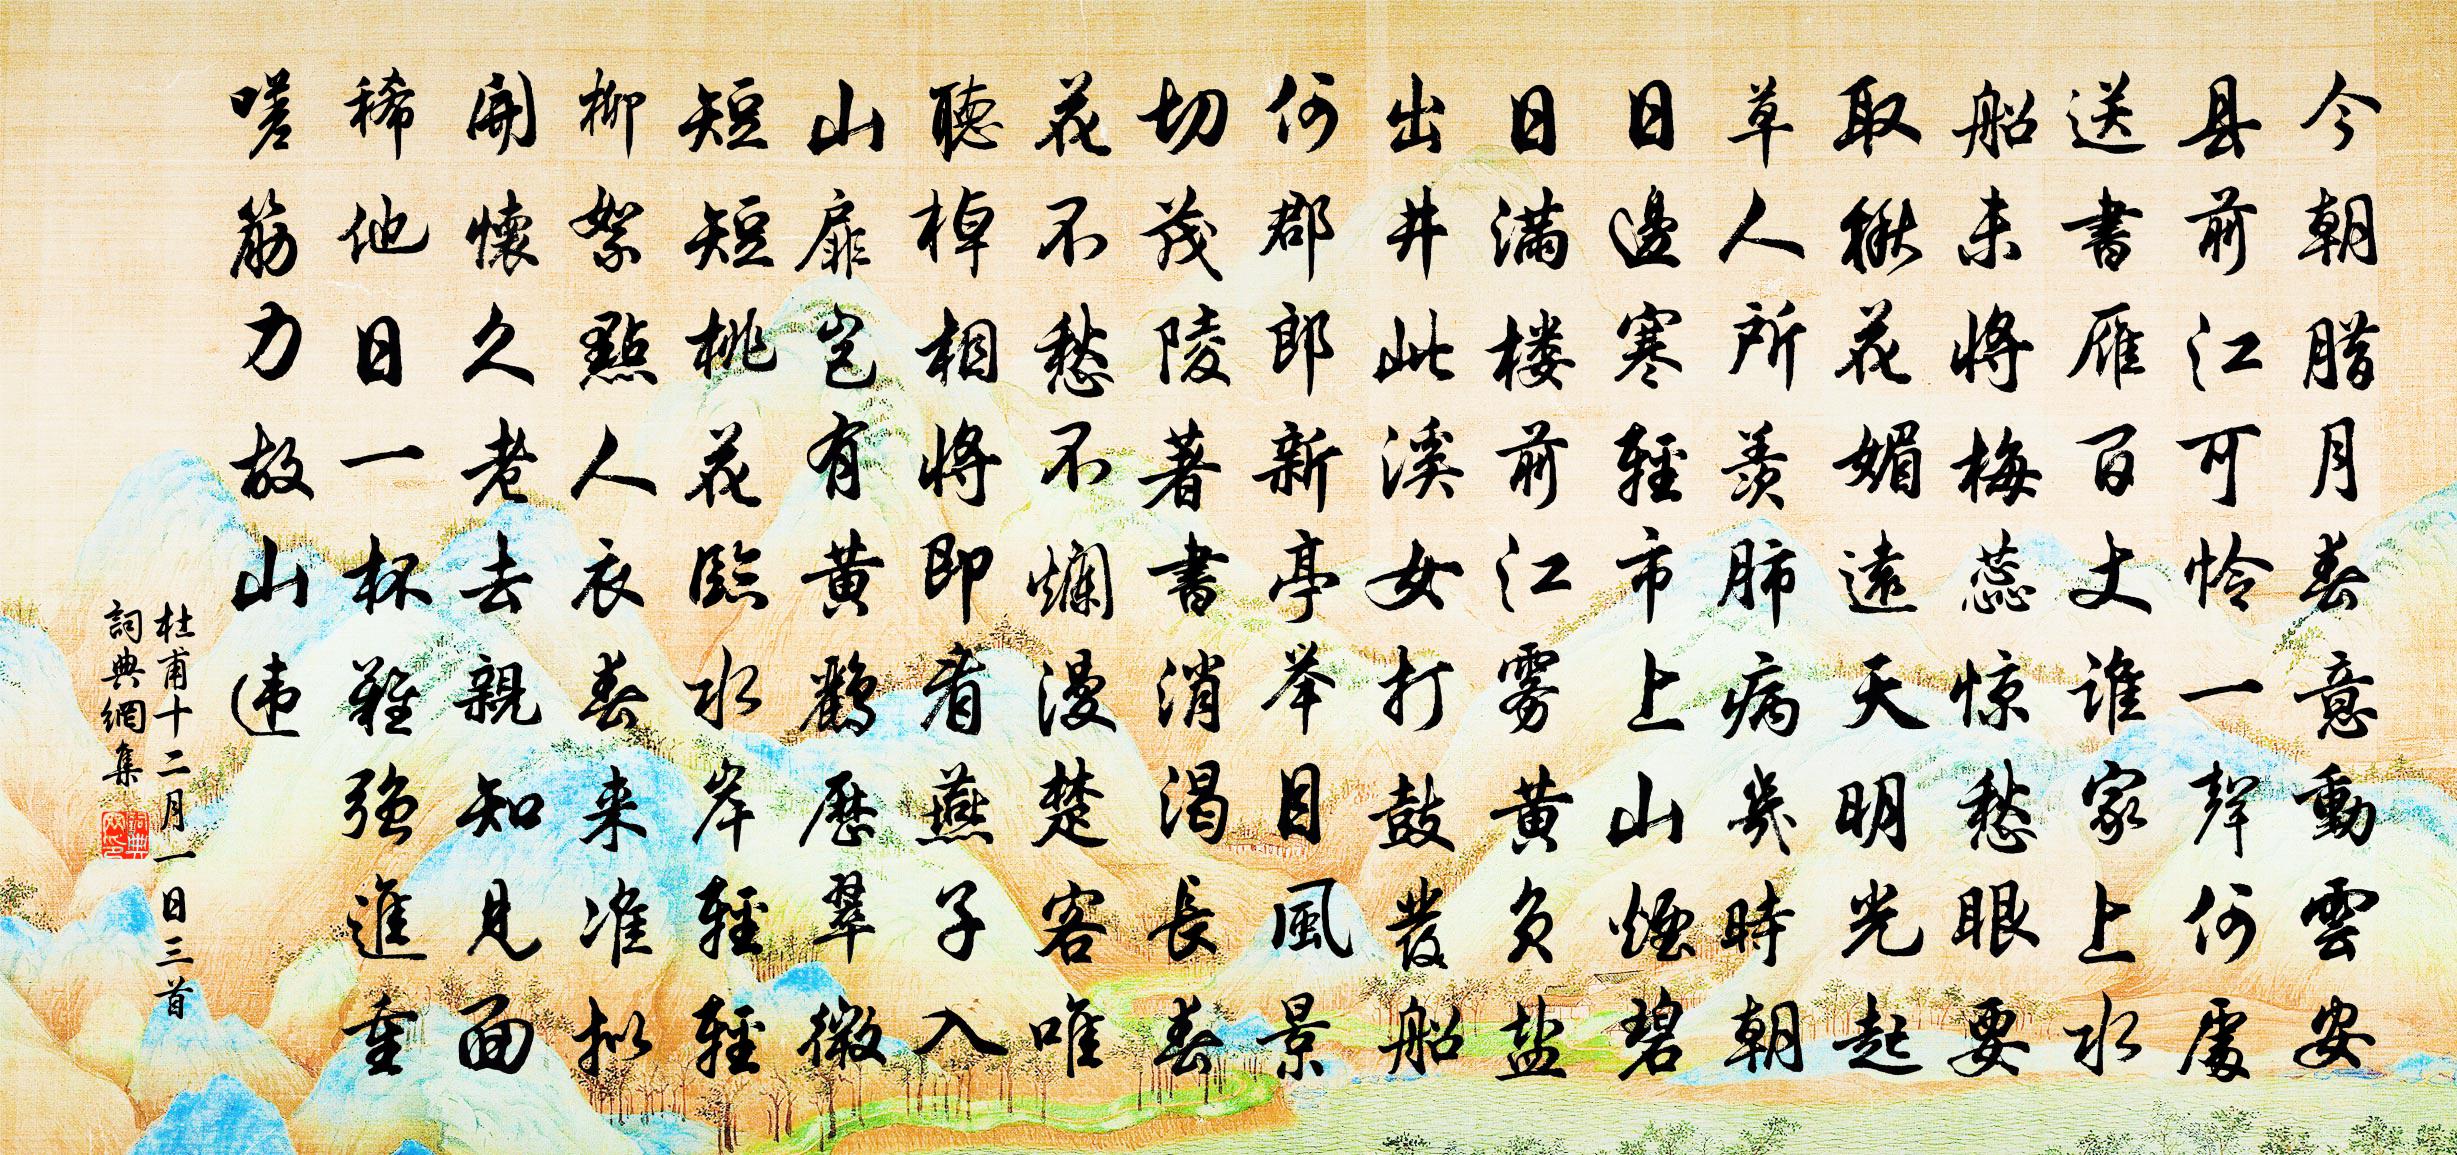 今朝腊月春意動雲安
县前江可怜一聲何處
送書雁百丈谁家上水
船未将梅蕊惊愁眼要
取楸花媚遠天明光起
草人所羡肺病幾時朝
日邊寒輕市上山煙碧
日满楼前江雾黄负盐
出井此溪女打鼓發船
何郡郎新亭举目風景
切茂陵著書消渴長春
花不愁不爛漫楚客唯
聽棹相将即看燕子入
山扉岂有黄鸝歷翠微
短短桃花臨水岸輕輕
柳絮點人衣春来准拟
開懷久老去親知見面
稀他日一杯難強進重
嗟筋力故山违
杜甫十二月一日三首
詞典網集